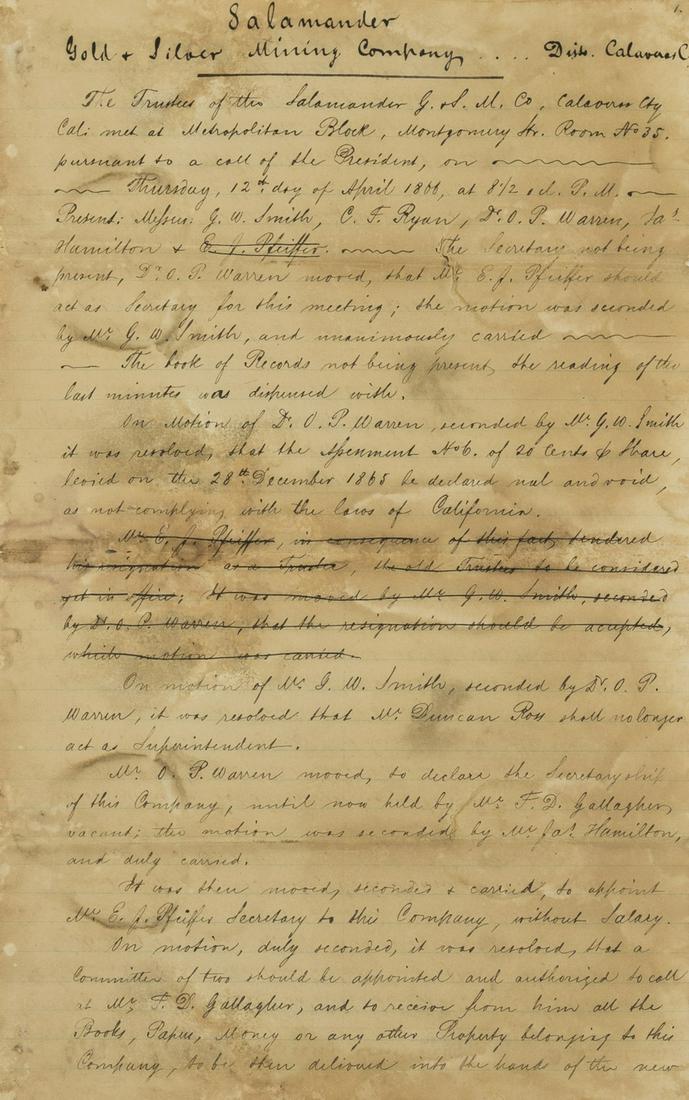 1.
Salamander
Gold & Silver Mining Company .... Distr. Calaveras C
The Trustees of the Salamander G. & S. M. Co, Calaveras Cty
Cal: met at Metropolitan Block, Montgomery Str. Room No 35.
pursuant to a call of the President, on
Thursday, 12th day of April 1866, at 8 1/2 o cl. P. M.
Present: Messrs: G. W. Smith, C. F. Ryan, Dr. O. P. Warren, Jas
Hamilton & E. J. Pfeiffer. The Secretary not being
present, Dr. O. P. Warren moved, that Mr. E. J. Pfeiffer should
act as Secretary for this meeting; the motion was seconded
by Mr. G. W. Smith, and unanimously carried
The book of Records not being present, the reading of the
last minutes was dispensed with.
On Motion of Dr. O. P. Warren, seconded by Mr. G. W. Smith
it was resolved, that the Assessment No 6. of 20 Cents p Share,
levied on the 28th December 1865 be declared nul and void,
as not complying with the laws of California.
Mr. E. J. Pfeiffer, in consequence of this fact, tendered
his resignation as a Trustee, the old Trustees to be considered
yet in office; It was moved by Mr. G. W. Smith, seconded
by Dr. O. P. Warren, that the resignation should be accepted,
which motion was carried.
On motion of Mr. G. W. Smith, seconded by Dr. O. P.
Warren, it was resolved that Mr. Duncan Ross shall no longer
act as Superintendent.
Mr. O. P. Warren moved, to declare the Secretaryship
of this Company, until now held by Mr. F. D. Gallagher,
vacant; the motion was seconded by Mr. Jas. Hamilton,
and duly carried.
It was then moved, seconded & carried, to appoint
Mr. E. J. Pfeiffer Secretary to this Company, without Salary.
On motion, duly seconded, it was resolved, that a
Committee of two should be appointed and authorized to call
at Mr. F. D. Gallagher, and to receive from him all the
Books, Papers, Money or any other Property belonging to this
Company, to be then delivered into the hands of the new